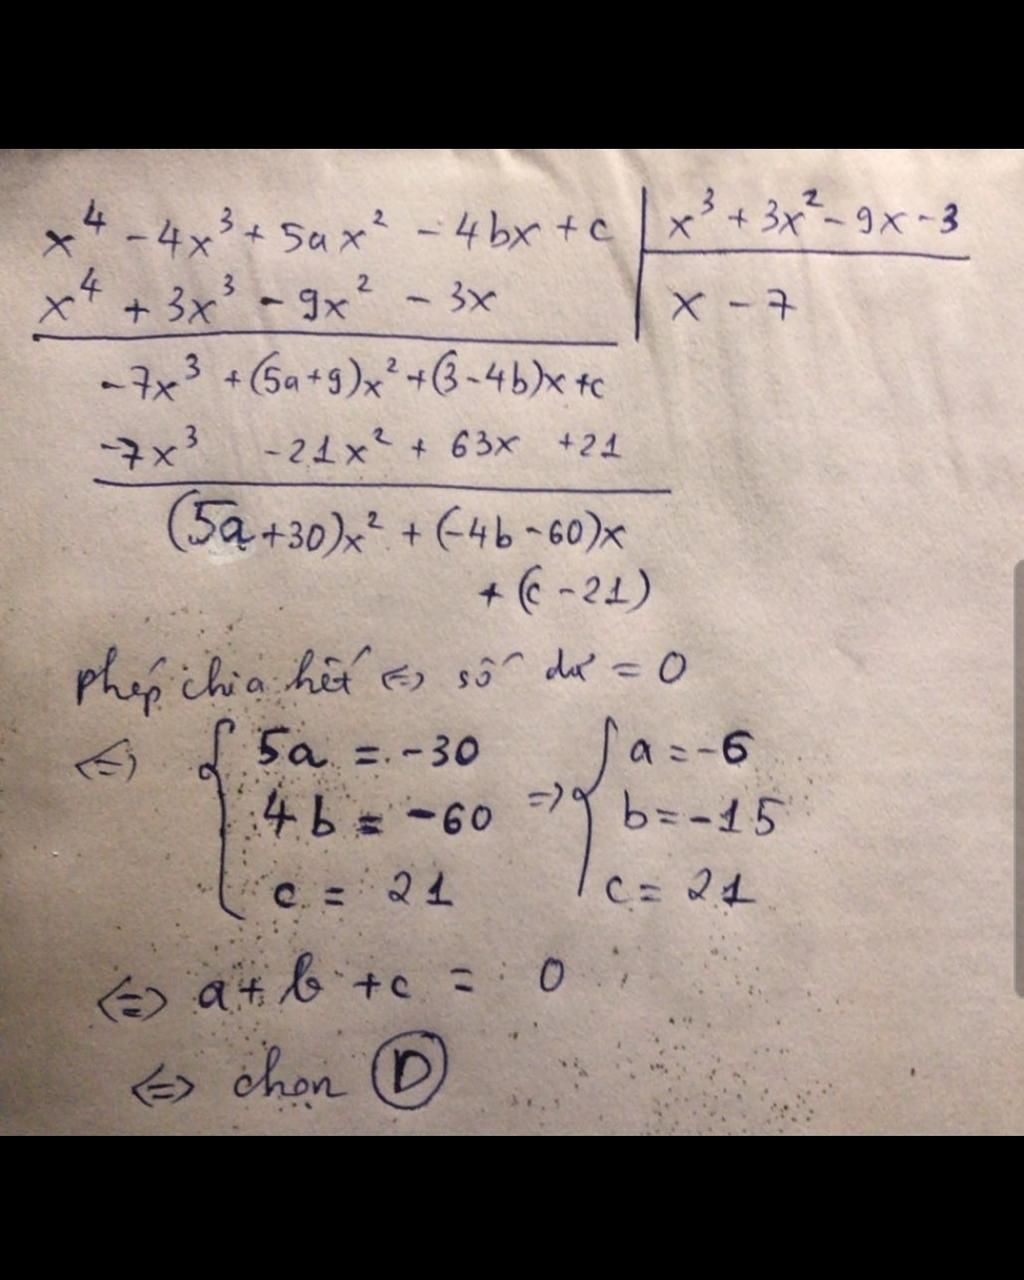 x⁴ - 4x³ + 5ax² - 4bx + c | x³ + 3x² - 9x - 3
x⁴ + 3x³ - 9x² - 3x | x - 7
-7x³ + (5a+9)x² + (3-4b)x + c
-7x³ -21x² + 63x + 21
(5a+30)x² + (-4b-60)x
+ (c - 21)
phép chia hết <=> số dư = 0
<=> { 5a = -30 => { a = -6
4b = -60 b = -15
c = 21 c = 21
<=> a + b + c = 0
<=> chọn D